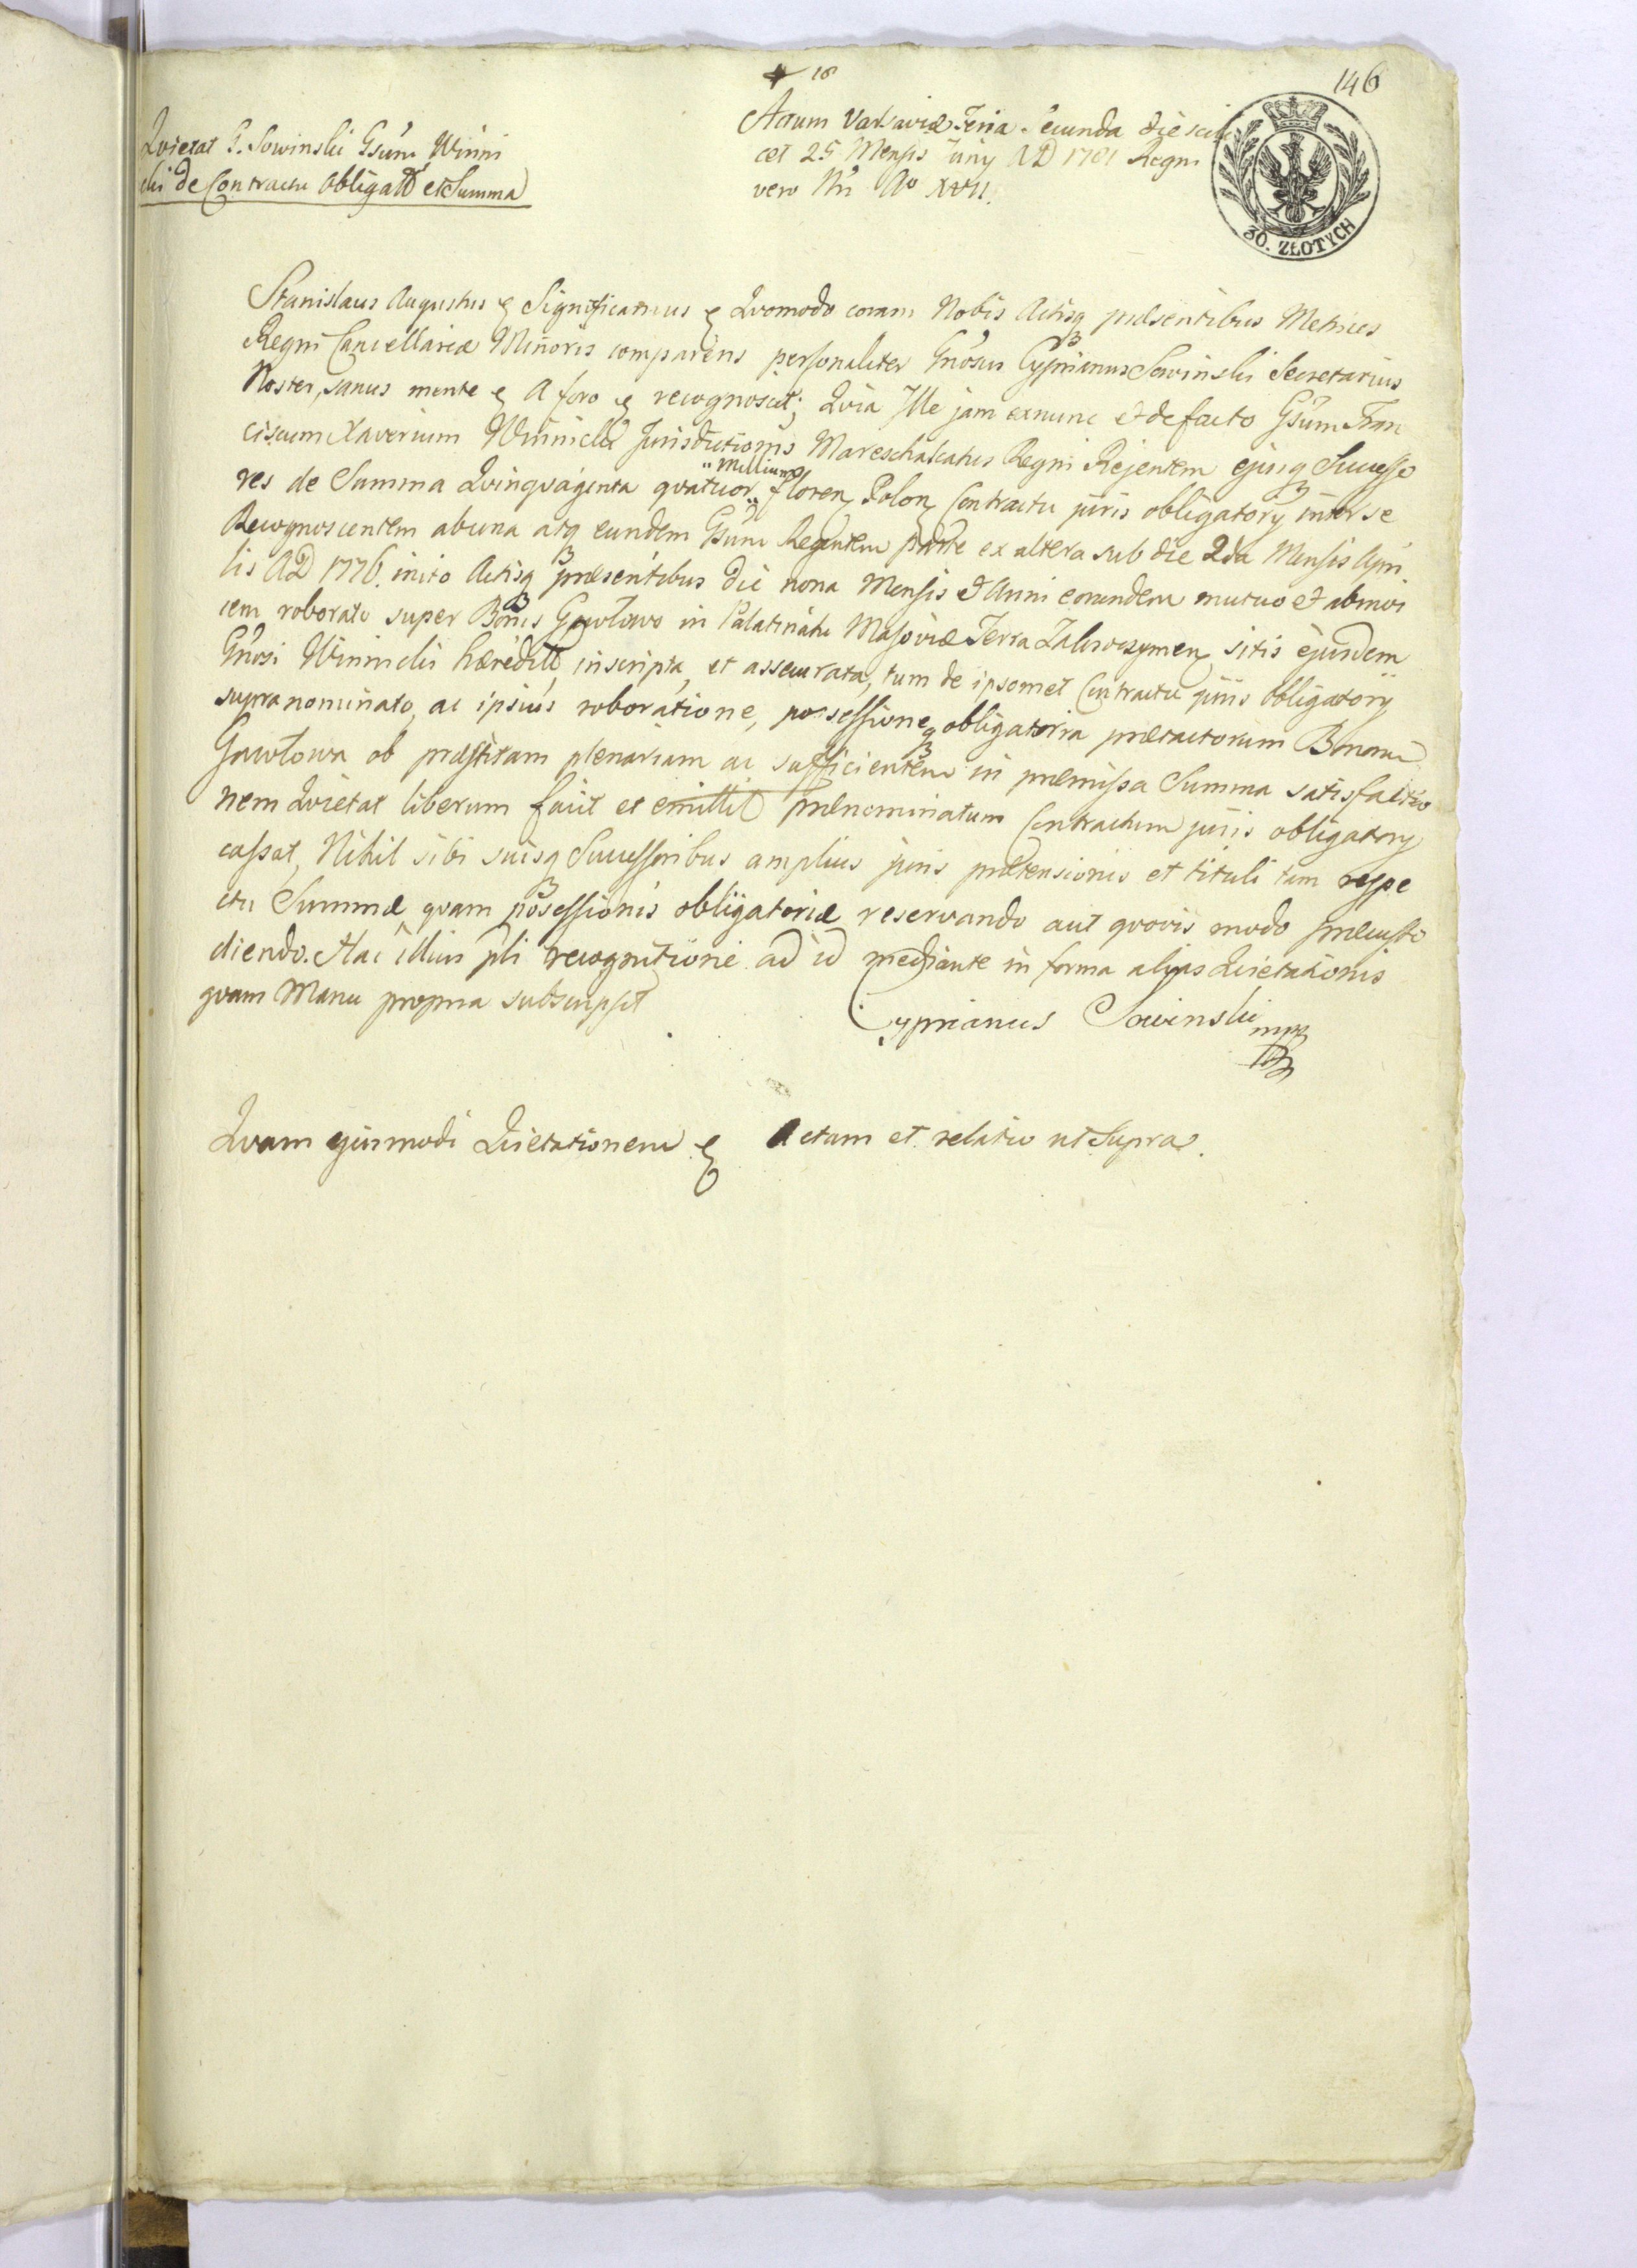 18
146
Qvietat G. Sowinski Gsum Winni
cki de Contractu Obligatt et Summa
Actum Varsaviæ Feria Secunda die scili
cet 25 Mensis Juny AD 1781 Regni
vero Nri Ao XVII.
30. ZŁOTYCH
Stanislaus Augustus & Significamus & Qvomodo coram Nobis Actisq præsentibus Metrices
Regni Cancellariæ Minoris comparens personaliter Gnosus Cyprianus Sowinski Secretarius
Noster, sanus mente & A foro & recognoscit; Qvia Ille jam exnunc et de facto Gsum Fran
ciscum Xaverium Winnicki Jurisdictionis Mareschalcatus Regni Rejentem ejusq Successo
res de Summa Qvinqvaginta qvatuor "Millium" Floren Polon Contractu juris obligatory inter se
Recognoscentem abuna atq eundem Gsum Regentem parte ex altera sub die 2da Mensis Apri
lis AD 1776. inito Actisq præsentibus die nona Mensis et Anni eorundem mutuo et abinvi
cem roborato super Bonis Gawłowo in Palatinatu Masoviæ Terra Zakroczymen sitis ejusdem
Gnosi Winnicki hæreditt, inscripta, et assecurata, tum de ipsomet Contractu juris obligatory
supra nominato, ac ipsius roboratione, possessioneq obligatoria prætactorum Bonorum
Gawłowa ob præstitam plenariam ac sufficientem in præmissa Summa satisfactio
nem Qvietat liberum facit et emittit prænominatum Contractum juris obligatory
cassat, Nihil sibi suisq Successoribus amplius juris prætensionis et tituli tam respe
ctu Summæ qvam possessionis obligatoriæ reservando aut qvovis modo præcusto
diendo. Hac illius pli recognitione ad id mediante in forma alias Qvietationis
qvam Manu propria subscripsit
Cyprianus Sowinski mpp
Qvam ejusmodi Qvietationem & Actum et relatio ut Supra.